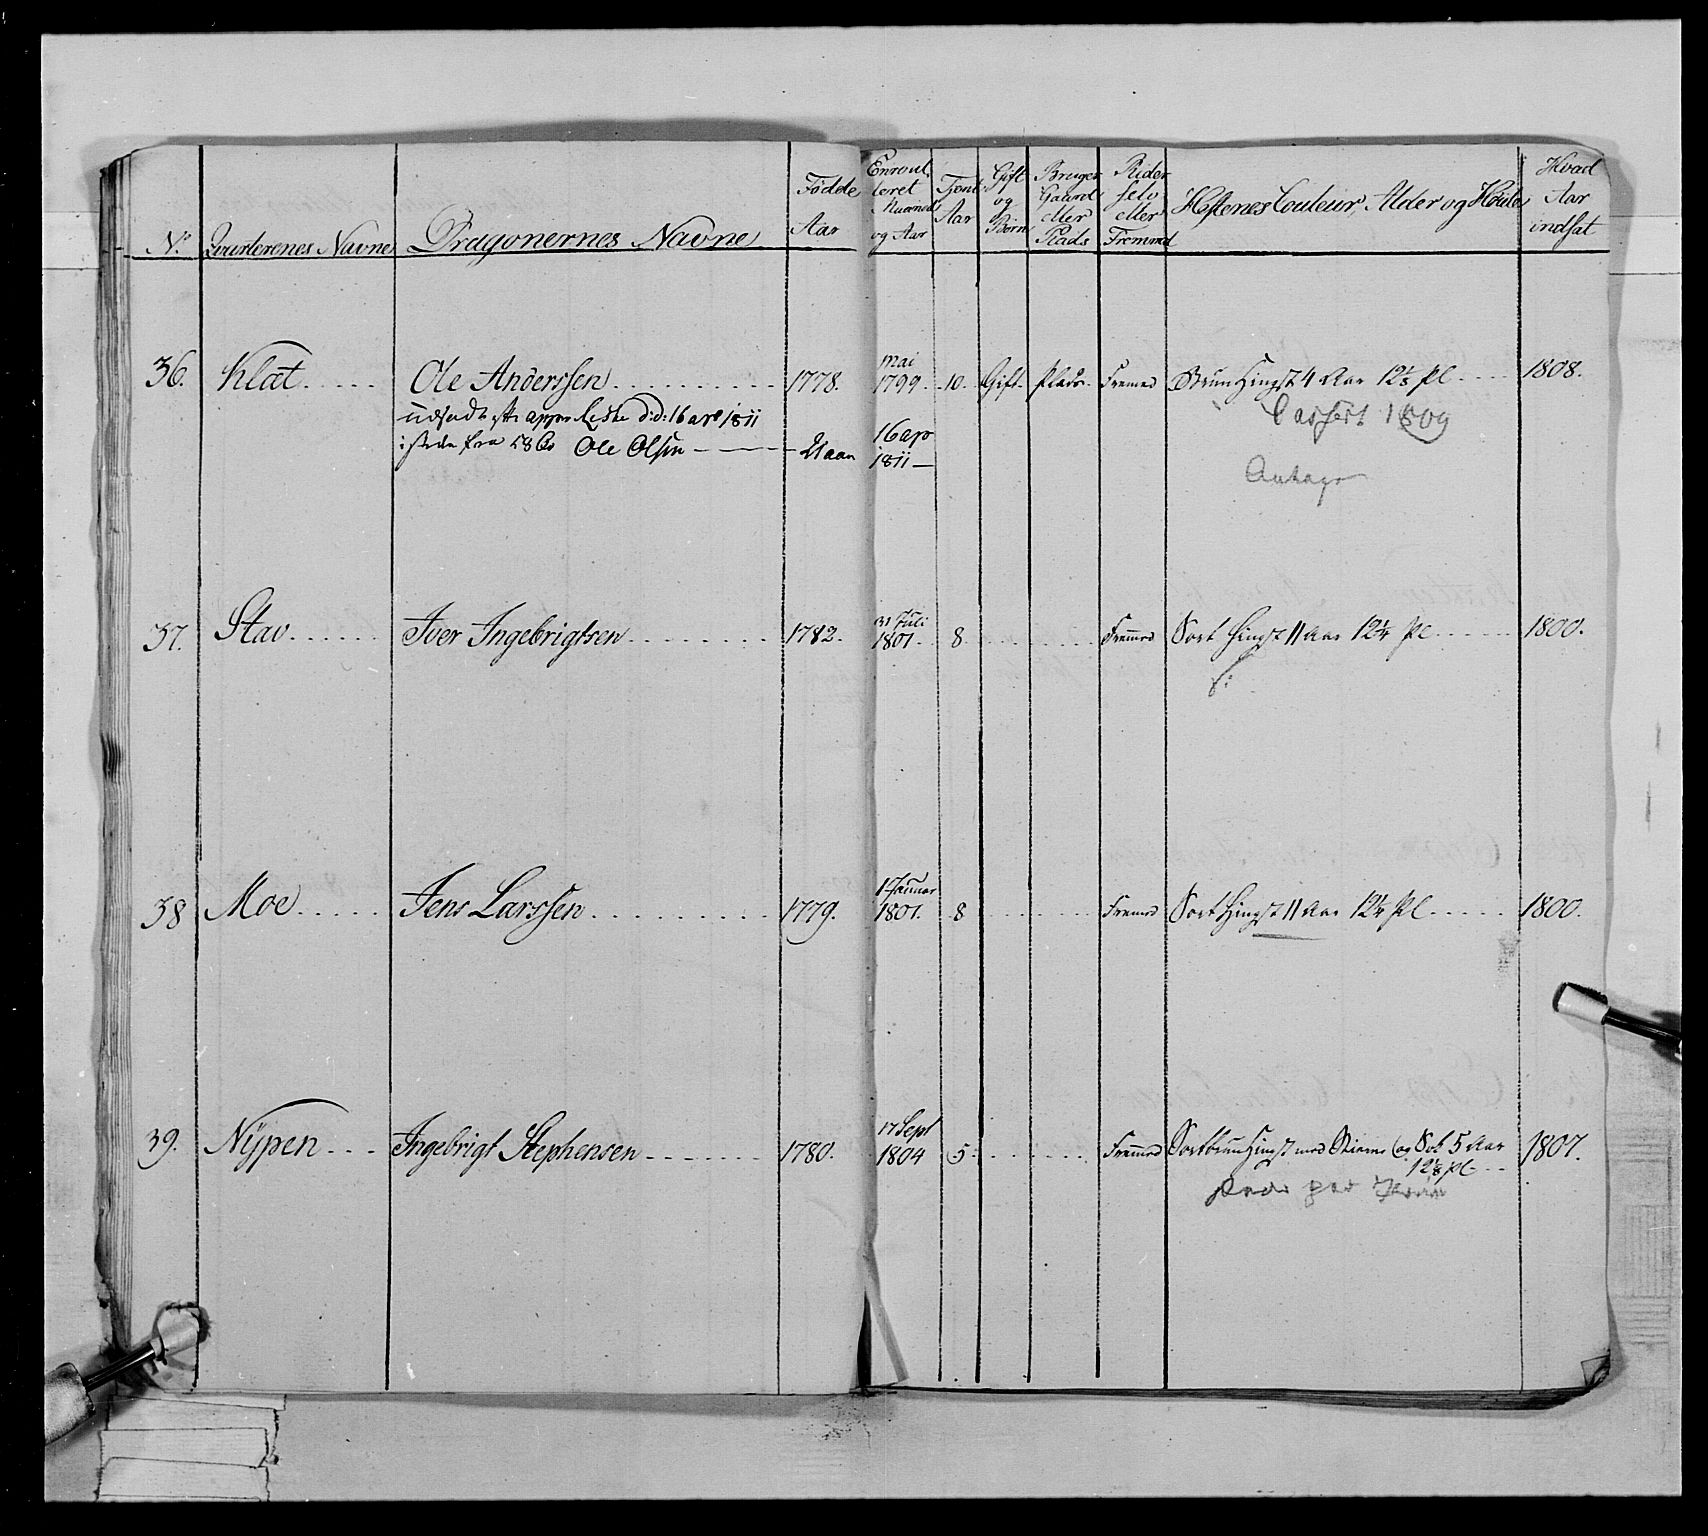 No. Qvarterenes Navne Dragonernes Navne Födde Aar Enroulleret Maaned og Aar Tjent Aar Gift og Börn Bruger Gaard eller Plads Rider selv eller Fremmd Hestenes Couleur, Alder og Höide Hvad Aar indsat
36. Klæt Ole Anderssen 1778. Mai 1799. 10. Gift. Plads. Fremed Bruun Hingst 4 Aar 12 1/8 Pl 1808.
udsadt efter Liste d: d: 16 apr 1811 Cassert 1809
i stede fra Ole Olsen 16 ap 1811
37. Stav Iver Ingebrigtsen 1782. 31 Juli 1801. 8 Fremed Sort Hingst 11 Aar 12 1/4 Pl 1800.
38 Moe Jens Larssen 1779. 1 Januar 1801. 8 Fremed Sort Hingst 11 Aar 12 1/4 Pl 1800.
39. Nÿpen Ingebrigt Stephensen 1780. 17 Sept 1804 5. Fremed Sortbruun Hingst med Stierne og 5 Aar 1807.
12 1/8 Pl